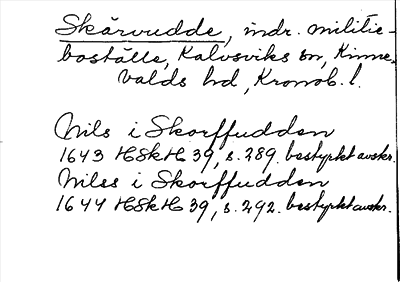 Skärvudde, indr. militie-
boställe, Kalvsviks sn, Kinne-
valds hd, Kronob. l.
Nils i Skorffudden
1643 HSkH 39, s. 289. bestyrkt avskr.
Niles i Skorffudden
1644 HSkH 39, s. 292. bestyrkt avskr.